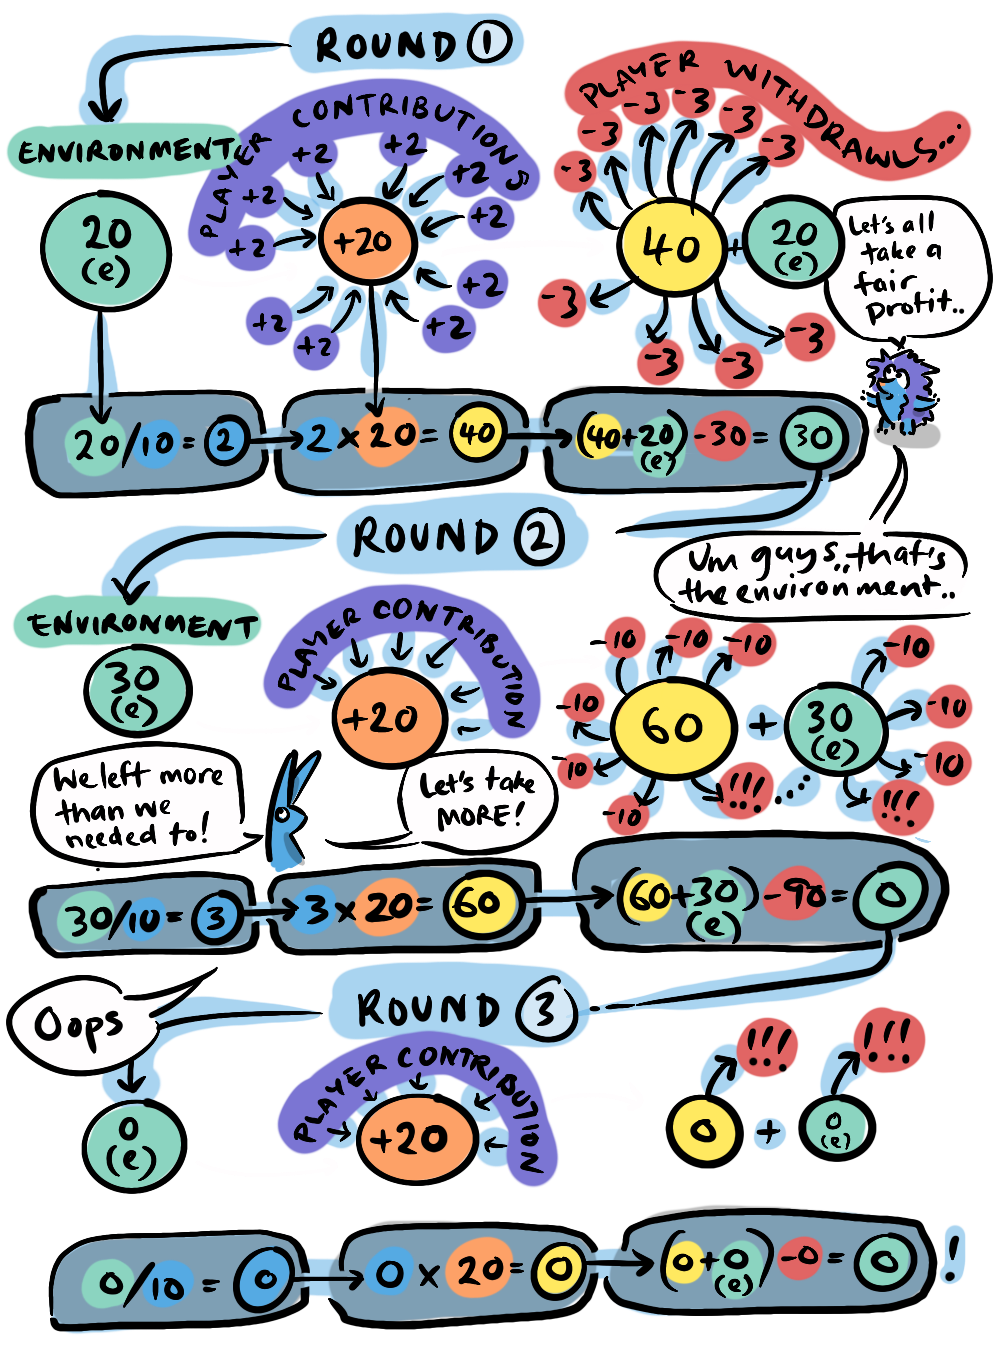 ROUND 1
ENVIRONMENT
20
(e)
PLAYER CONTRIBUTIONS
+2
+2
+2
+2
+2
+2
+2
+2
+2
+2
+20
PLAYER WITHDRAWLS...
-3
-3
-3
-3
-3
-3
-3
-3
-3
-3
40
+
20
(e)
Let's all
take a
fair
profit..
20/10=2
2x20=40
(40+20)-30=30
(e)
Um guys..that's
the environment..
ROUND 2
ENVIRONMENT
30
(e)
PLAYER CONTRIBUTION
+20
-10
-10
-10
-10
-10
-10
60
!!!...
+
30
(e)
-10
-10
-10
!!!
We left more
than we
needed to!
Let's take
MORE!
30/10=3
3x20=60
(60+30)-90=0
(e)
Oops
ROUND 3
0
(e)
PLAYER CONTRIBUTION
+20
!!!
!!!
0
+
0
(e)
0/10=0
0x20=0
(0+0)-0=0
(e)
!